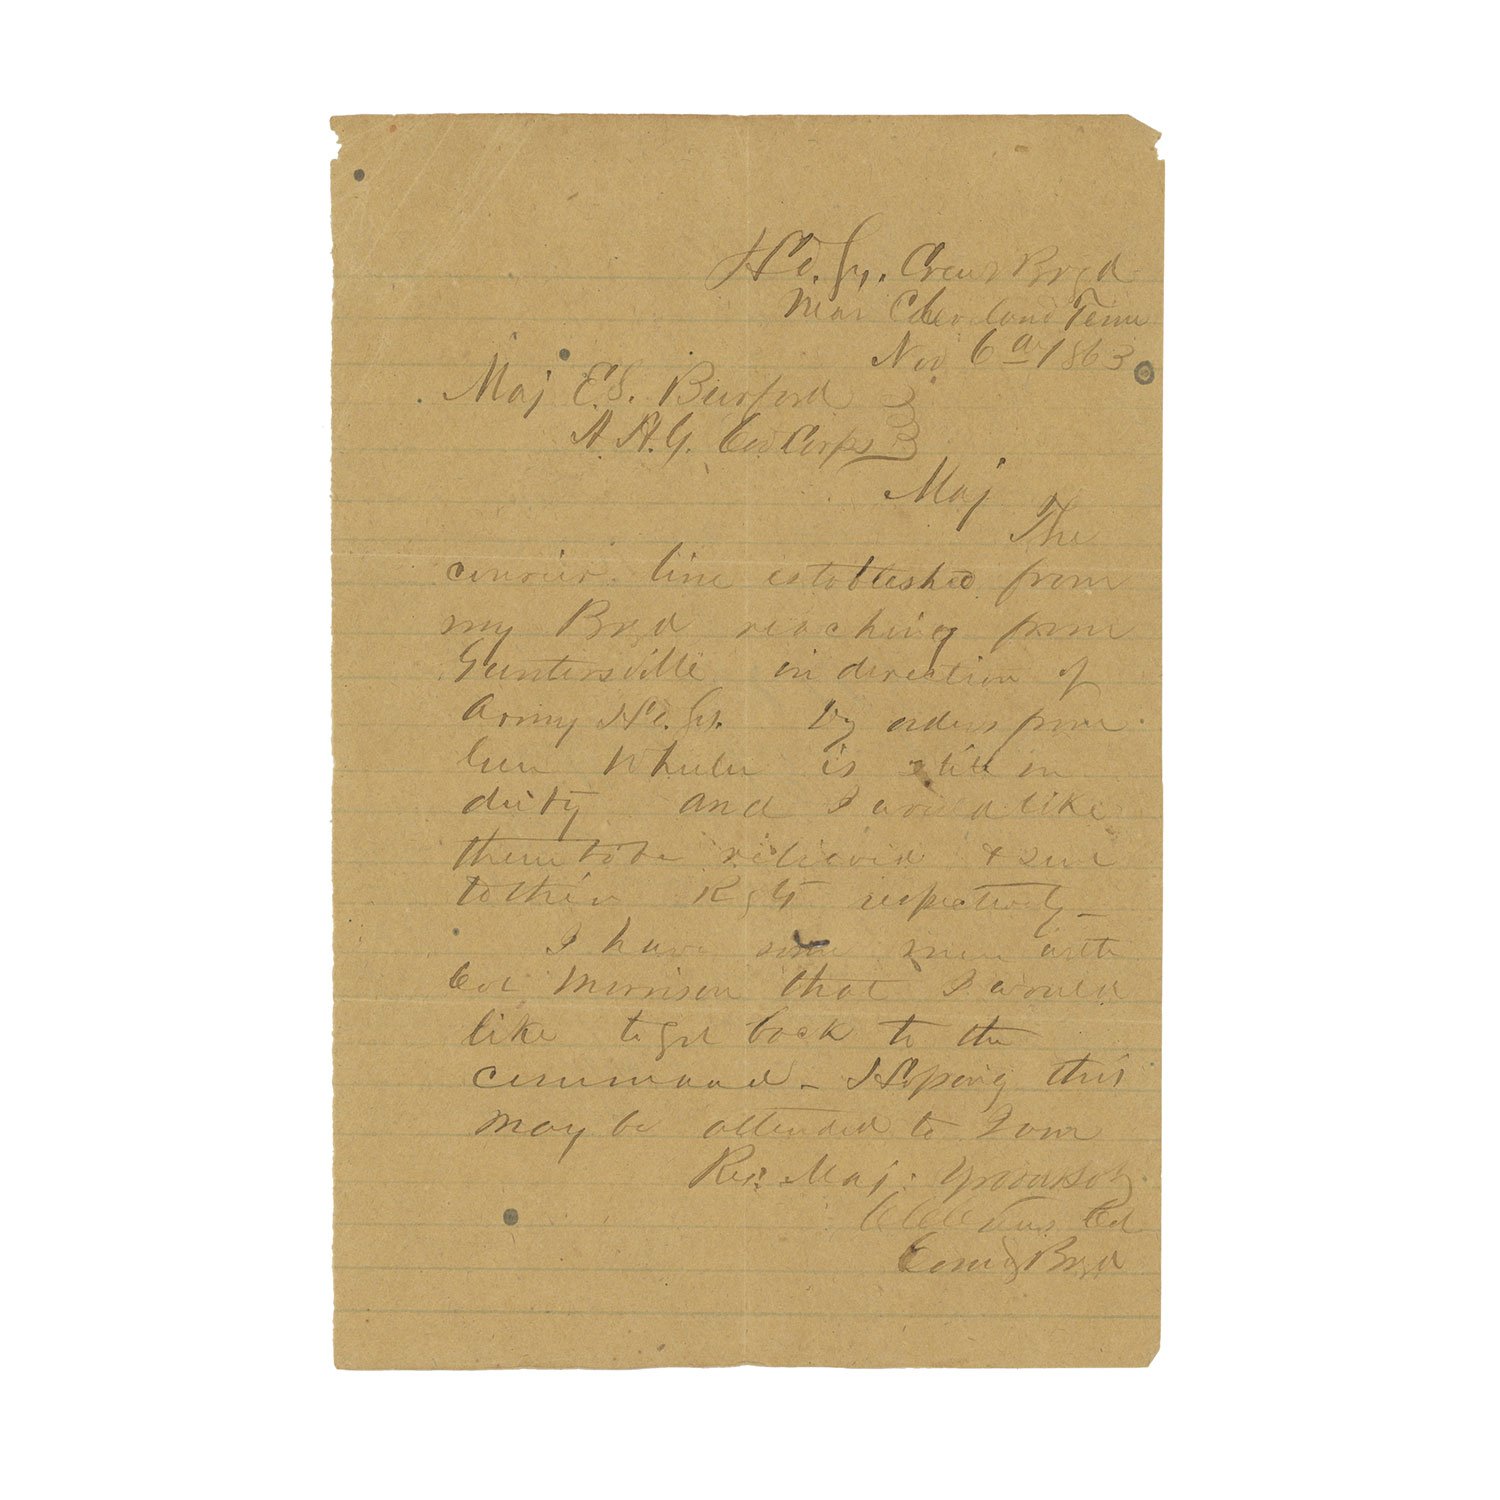 Hd. Qr. Crews Brgd
Near Cleveland Tenn
Nov 6th 1863
Maj E.S. Burford
A.A.G. Cav Corps
Maj
The
courier line established from
my Brgd reaching from
Guntersville in direction of
Army Hd. Qr. by orders from
Gen Wheeler is still on
duty and I would like
them to be relieved & sent
to their Rgt respectively
I have some men with
Col Morrison that I would
like to get back to the
command - Hoping this
may be attended to I am
Res. Maj. Your obt
C C Crews Col
Comdg Brgd